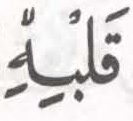 قَلْبِهِّ